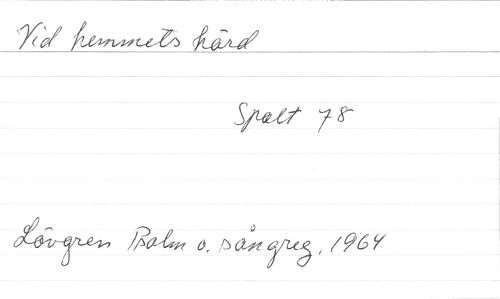 Vid hemmets härd
Spalt 78
Lövgren Psalm o. sångreg. 1964